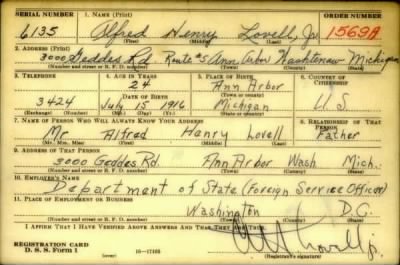 SERIAL NUMBER 1. NAME (Print) ORDER NUMBER
6135 Alfred Henry Lovell, Jr. 1569A
(First) (Middle) (Last)
2. ADDRESS (Print)
3000 Geddes Rd. Route #5 Ann Arbor Washtenaw Michigan
(Number and street or R. F. D. number) (Town) (County) (State)
3. TELEPHONE 4. AGE IN YEARS 5. PLACE OF BIRTH 6. COUNTRY OF CITIZENSHIP
24 Ann Arbor
DATE OF BIRTH (Town or county)
3424 July 15 1916 Michigan U S.
(Exchange) (Number) (Mo.) (Day) (Yr.) (State or country)
7. NAME OF PERSON WHO WILL ALWAYS KNOW YOUR ADDRESS 8. RELATIONSHIP OF THAT PERSON
Mr. Alfred Henry Lovell Father
(Mr., Mrs., Miss) (First) (Middle) (Last)
9. ADDRESS OF THAT PERSON
3000 Geddes Rd Ann Arbor Wash Mich.
(Number and street or R. F. D. number) (Town) (County) (State)
10. EMPLOYER'S NAME
Department of State (Foreign Service Officer)
11. PLACE OF EMPLOYMENT OR BUSINESS
Washington D.C.
(Number and street or R. F. D. number) (Town) (County) (State)
I AFFIRM THAT I HAVE VERIFIED ABOVE ANSWERS AND THAT THEY ARE TRUE.
REGISTRATION CARD
D. S. S. Form 1 (over) 16—17105 (Registrant's signature)